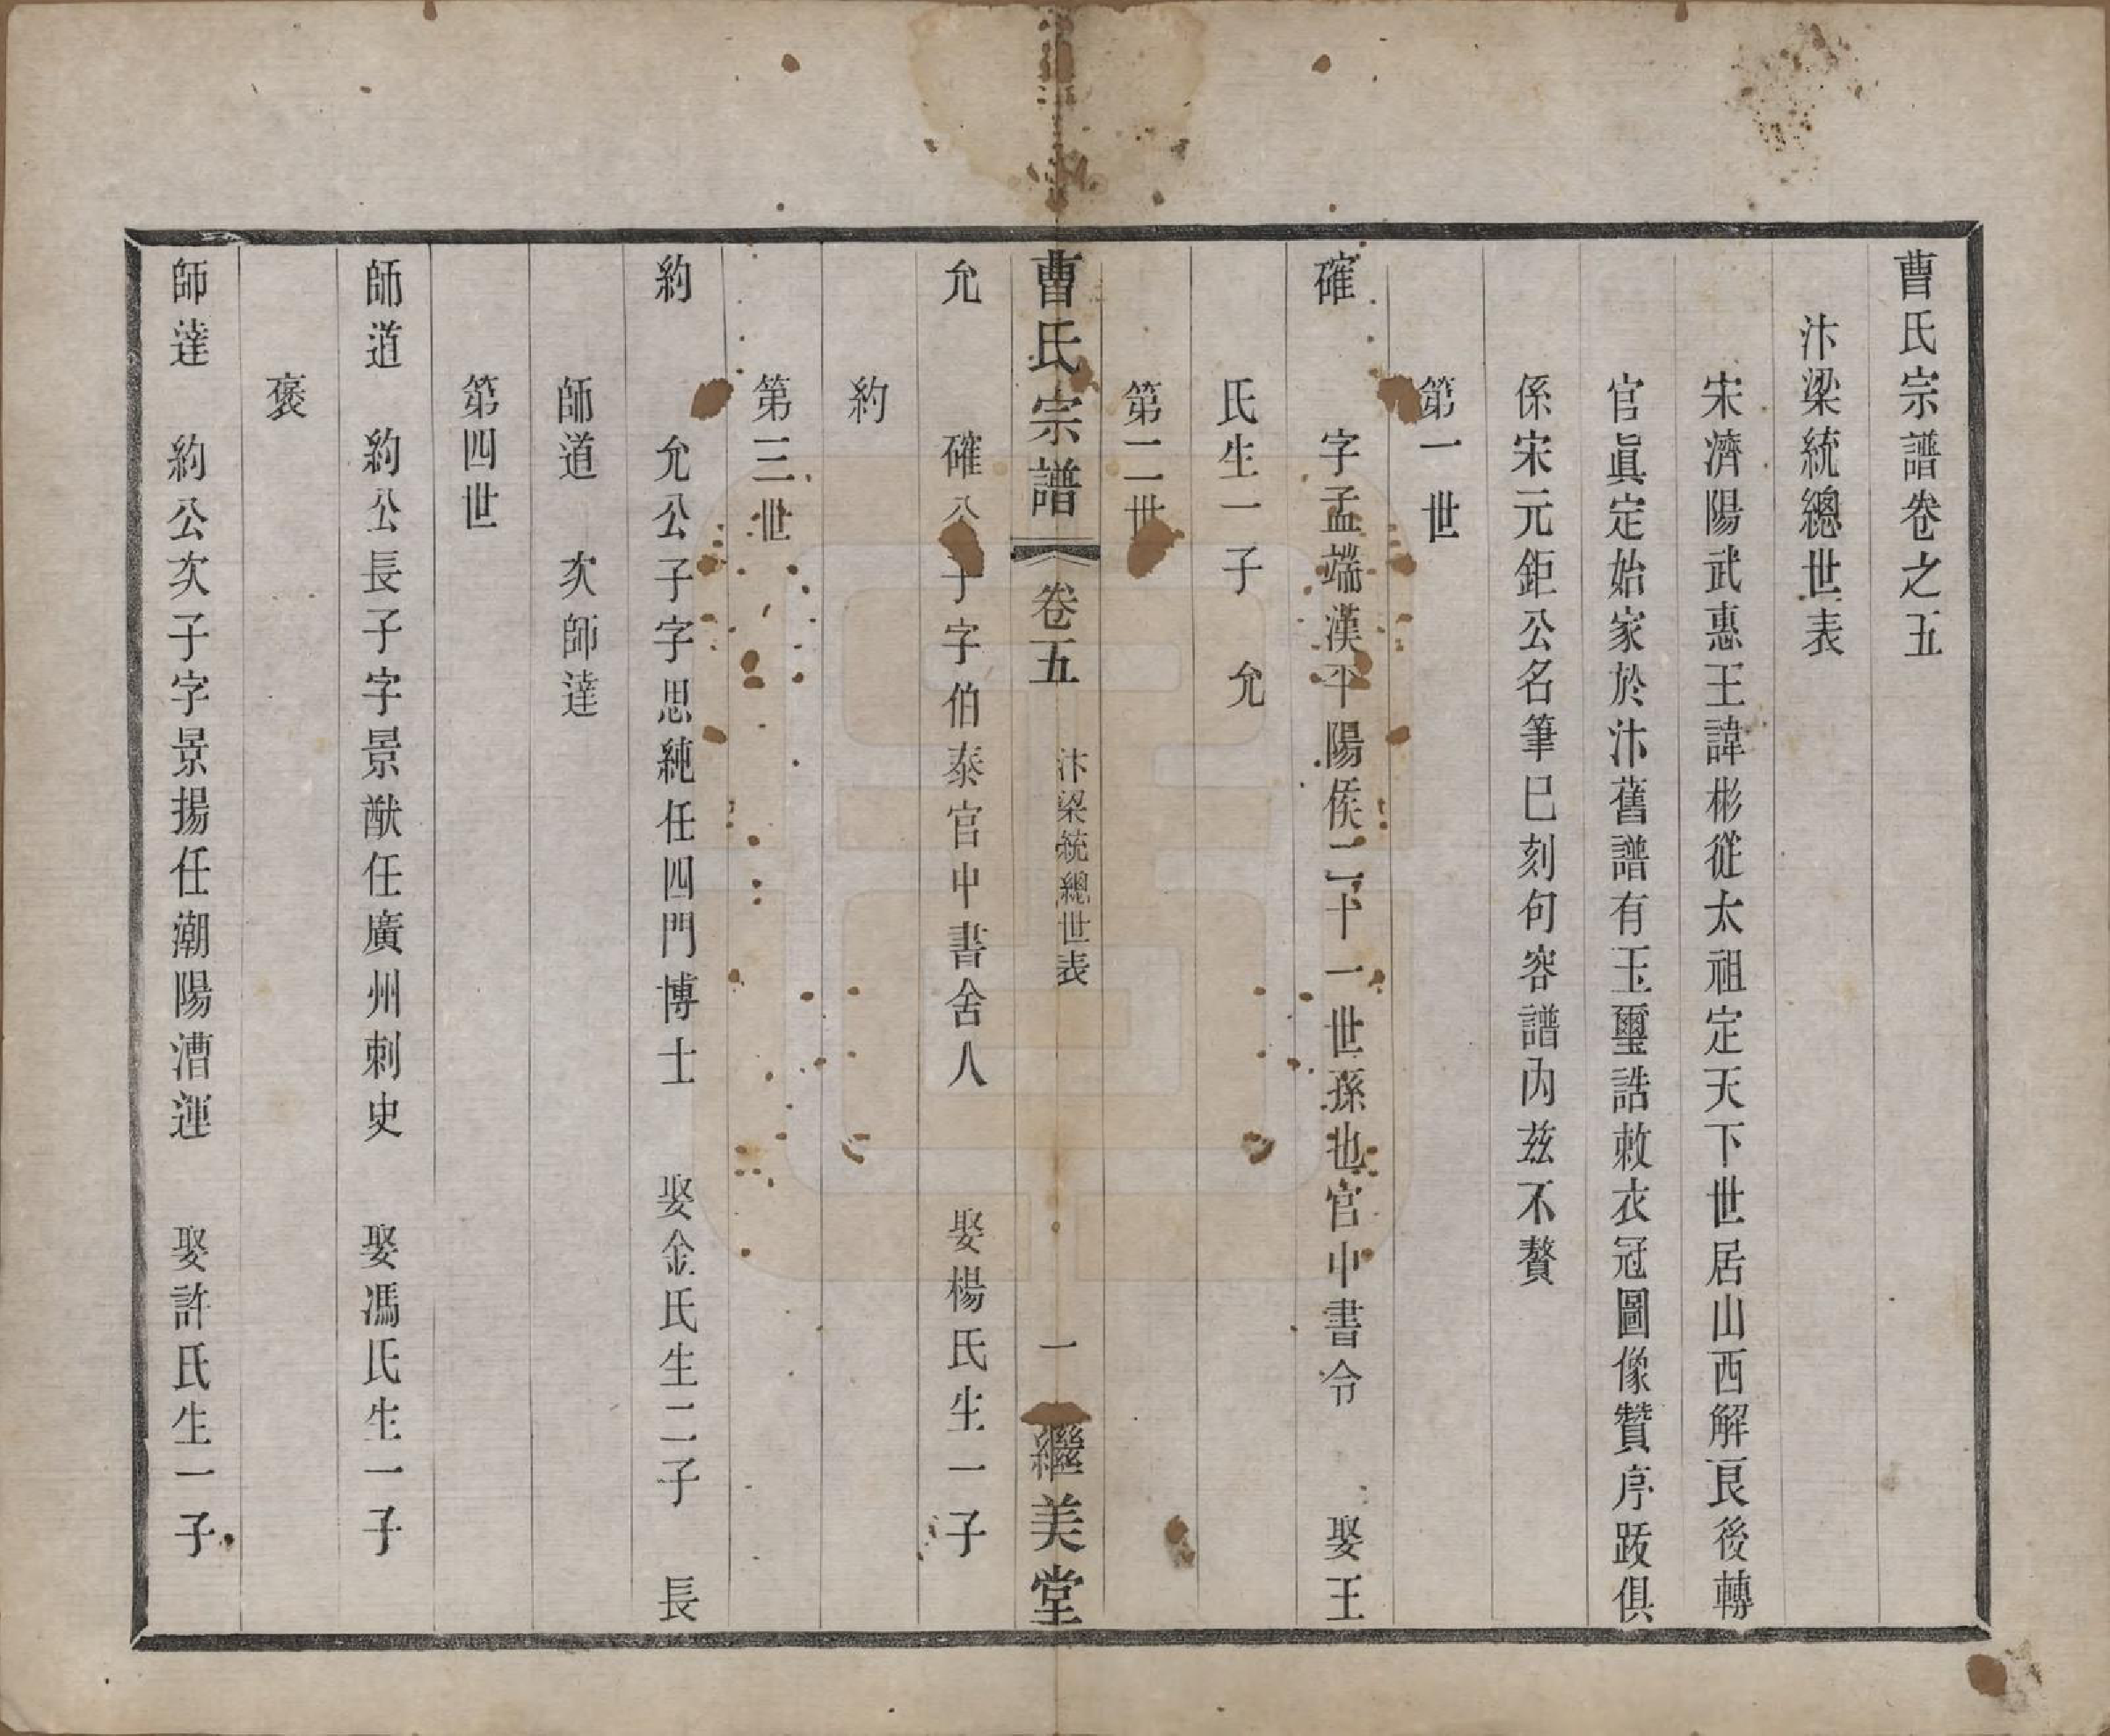 曹氏宗譜卷之五
汴梁統總世表
宋濟陽武惠王諱彬從太祖定天下世居山西解艮後轉
官眞定始家於汴舊譜有玉璽誥敕衣冠圖像贊序跋俱
係宋元鉅公名筆巳刻句容譜內茲不贅
第一世
確 字孟端漢平陽侯二十一世孫也官中書令 娶王
氏生一子 允
第二世
曹氏宗譜 卷五 汴梁統總世表 一 繼美堂
允 確公子字伯泰官中書舍人 娶楊氏生一子
約
第三世
約 允公子字思純任四門博士 娶金氏生二子 長
師道 次師達
第四世
師道 約公長子字景猷任廣州刺史 娶馮氏生一子
褒
師達 約公次子字景揚任潮陽漕運 娶許氏生一子